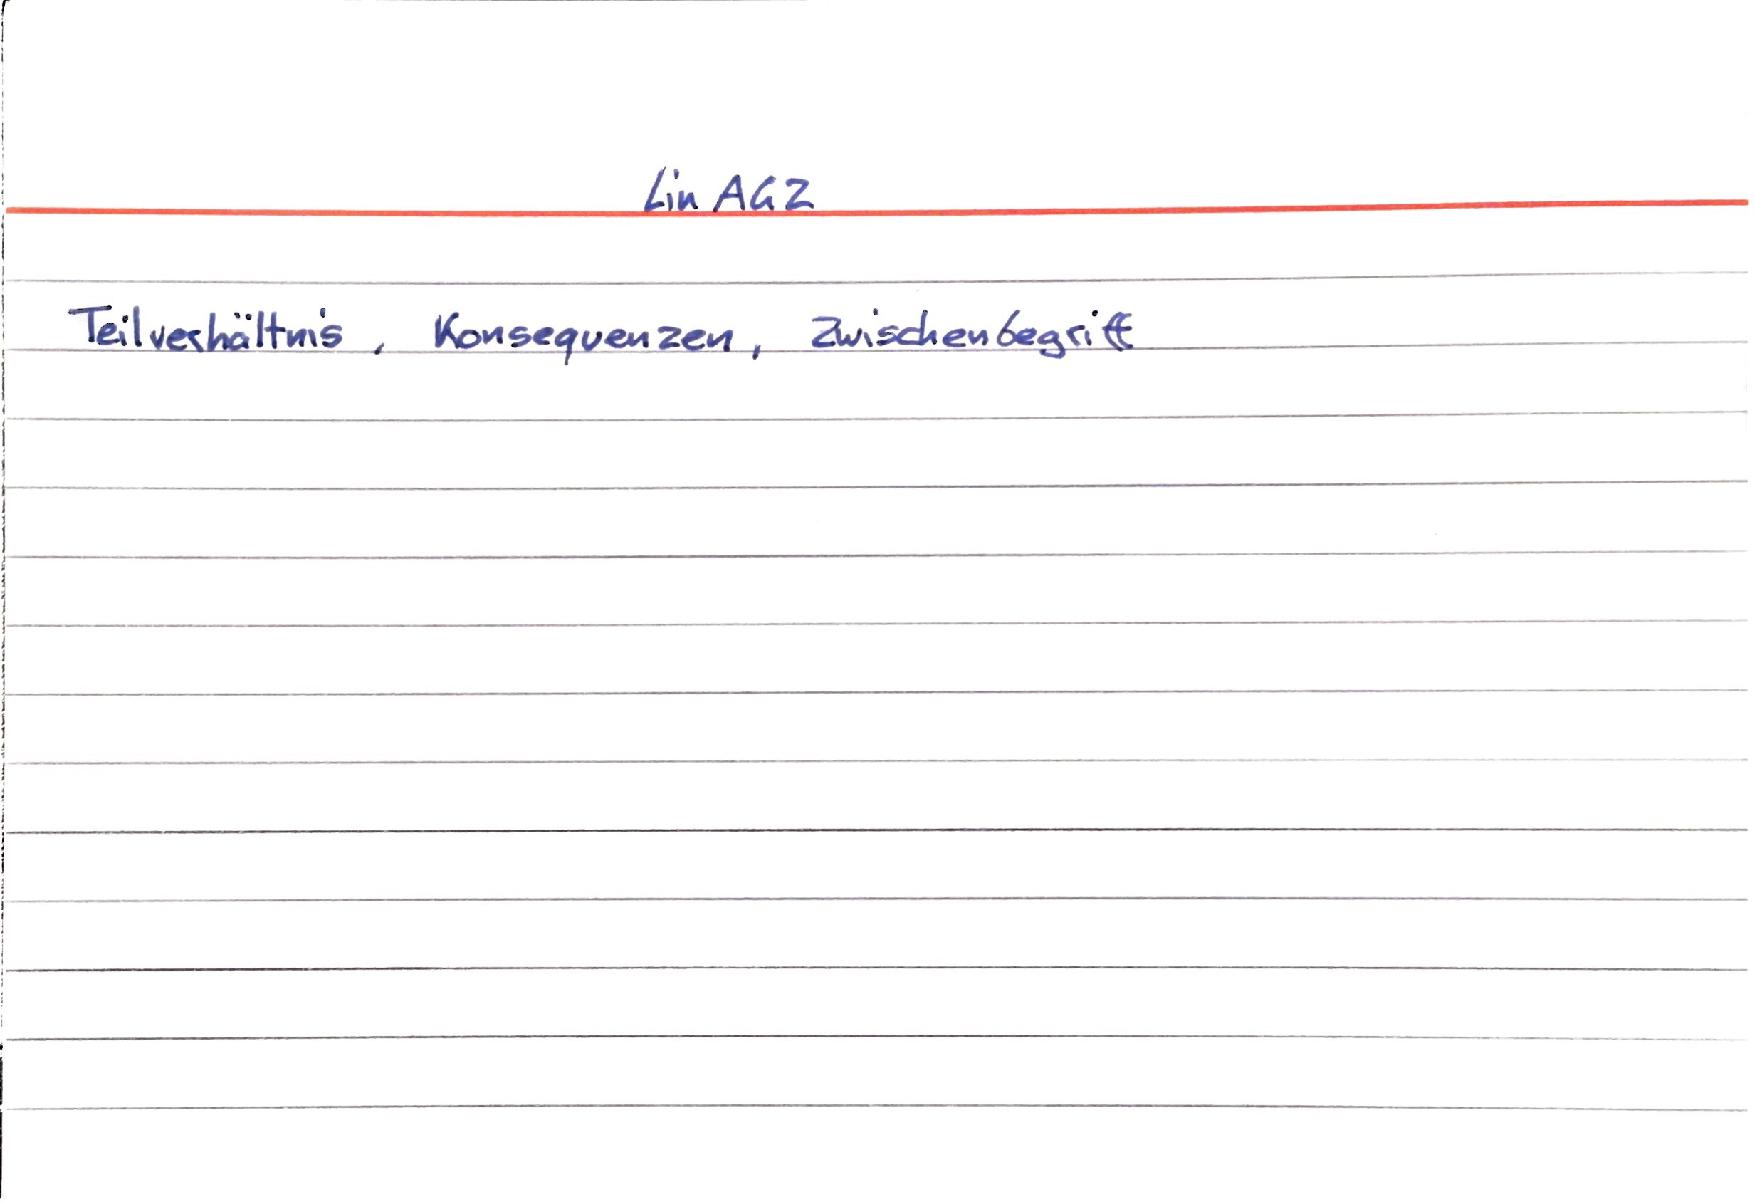 Lin AG 2
Teilverhältnis, Konsequenzen, Zwischenbegriff